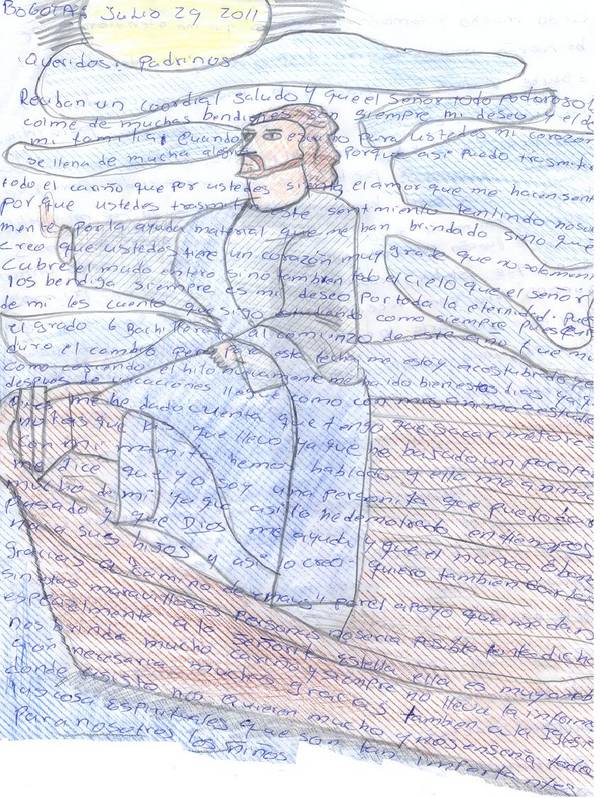 BOGOTA, Julio 29 2011
¡Queridos! padrinos
Reciban un coordial saludo y que el Señor todo poderoso l
colme de muchas bendiciones siempre mi deseo y el d
mi familia Cuando escribo para ustedes mi corazon
se llena de mucha alegria porque asi puedo trasmitir
todo el cariño que por ustedes siento el amor que me hacen sent
por que ustedes trasmiten este sentimiento tentindo nosu
mente por la ayuda material que me han brindado sino que
Creo que ustedes tiene un corazón muy grade que no solament
Cubre el mudo entero si no tambien todo el cielo que el señor
los bendiga siempre es mi deseo por toda la eternidad. pues
de mi les cuento que sigo estudiando como siempre pues en
el grado 6 Bachillerato al comienzo de este año fue mu
duro el cambio pero para esta fecha me estoy acostubrado
como cogiendo el hilo nuevamente me ha ido bien estos dias ya q
despues de vacaciones llegue como con mas animo estudi
me he dado cuenta que tengo que sacar mejore
notas que las que llevo ya que he bajado un poco p
con mi mamita hemos hablado y ella me anima
me dice que yo soy una personita que puedo dar
mucho de mi ya que asi lo he demostrado en tiempos
pasado y que Dios me ayuda y que el nunca aban
na a sus hijos y asi lo creo quiero tambien darlas
gracias a "camino de emaus" por el apoyo que me dan
sin estas maravillosas personas no seria posible tenta dicha
especialmente a la SEÑORIT estella ella es muy amab
nos brinda mucho cariño y siempre no lleva la inform
ción necesaria muchas gracias tambien a la Iglesia
donde asisto nos quieren mucho y nos enseña todas
las cosa espirituales que son tan importantes
para nosotros los niños